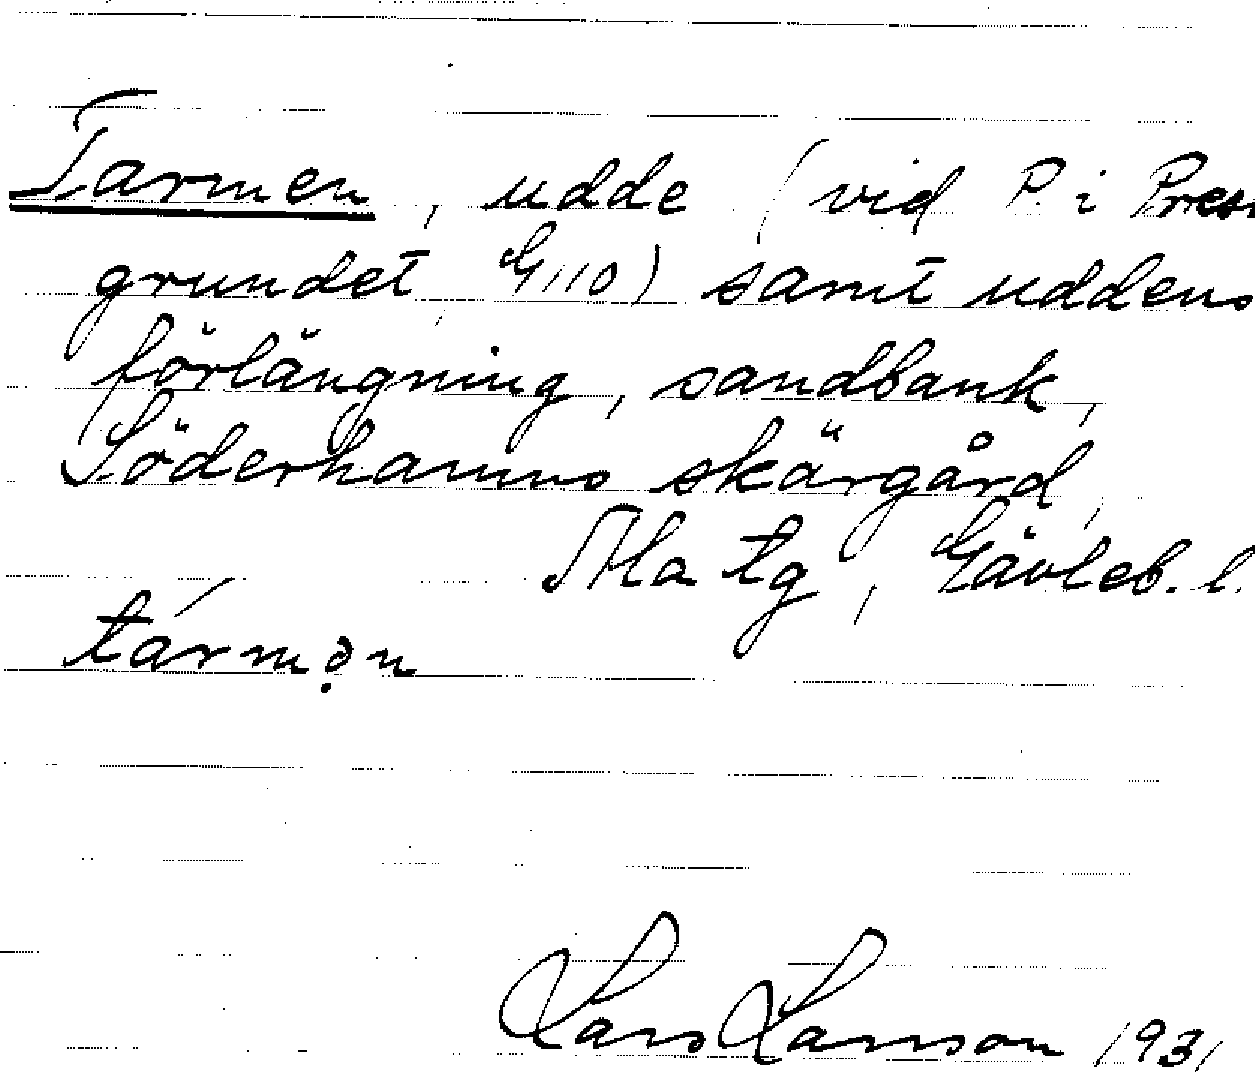 Tarmen, udde (vid P. i Press
grundet, G110) samt uddens
förlängning, sandbank,
Söderhamns skärgård,
Ala tg, Gävleb. l.
tármǫn
Lars Larsson 1931